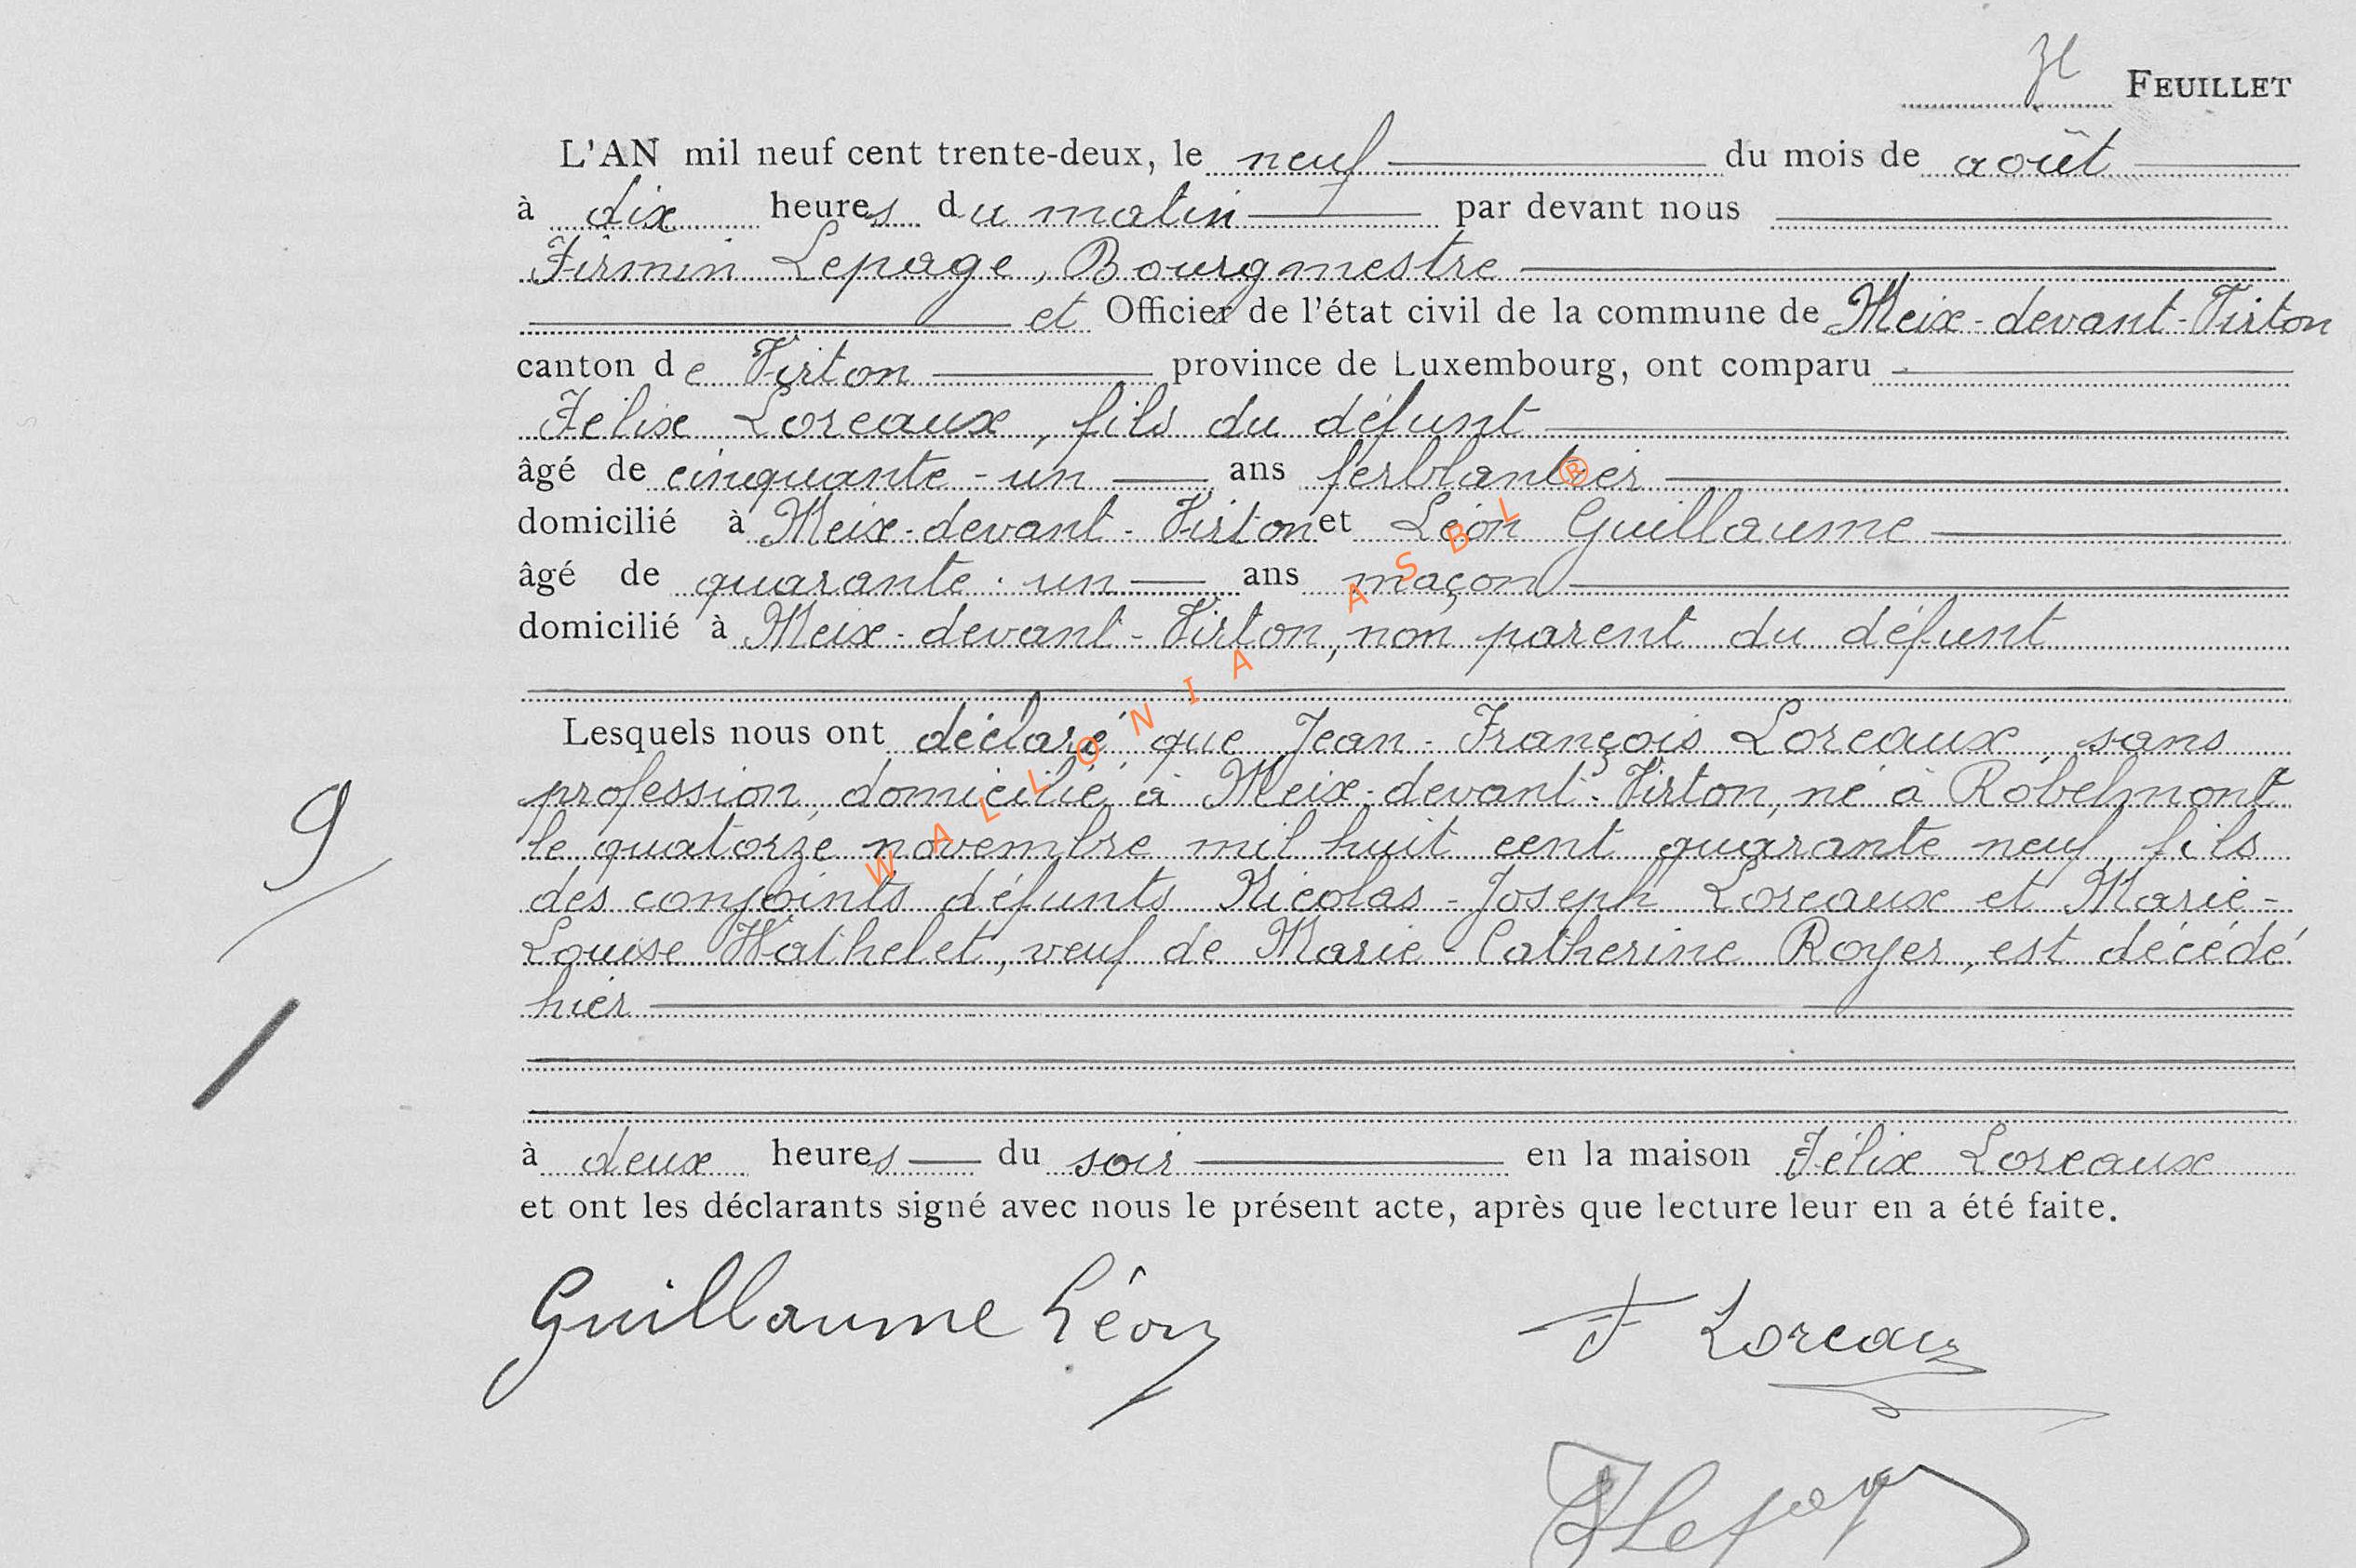 3e FEUILLET
L'AN mil neuf cent trente-deux, le neuf du mois de août
à dix heures du matin par devant nous
Firmin Lepage, Bourgmestre
et Officier de l'état civil de la commune de Meix-devant-Virton
canton de Virton province de Luxembourg, ont comparu
Félix Loreaux, fils du défunt
âgé de cinquante-un ans ferblantier
domicilié à Meix-devant-Virton et Léon Guillaume
âgé de quarante-un ans maçon
domicilié à Meix-devant-Virton, non parent du défunt
Lesquels nous ont déclaré que Jean-François Loreaux, sans
profession, domicilié à Meix-devant-Virton, né à Robelmont
le quatorze novembre mil huit cent quarante neuf, fils
des conjoints défunts Nicolas-Joseph Loreaux et Marie-
Louise Wathelet, veuf de Marie-Catherine Royer, est décédé
hier
9
à deux heures du soir en la maison Félix Loreaux
et ont les déclarants signé avec nous le présent acte, après que lecture leur en a été faite.
Guillaume Léon
F Loreaux
FLepage
WALLONIA ASBL ®